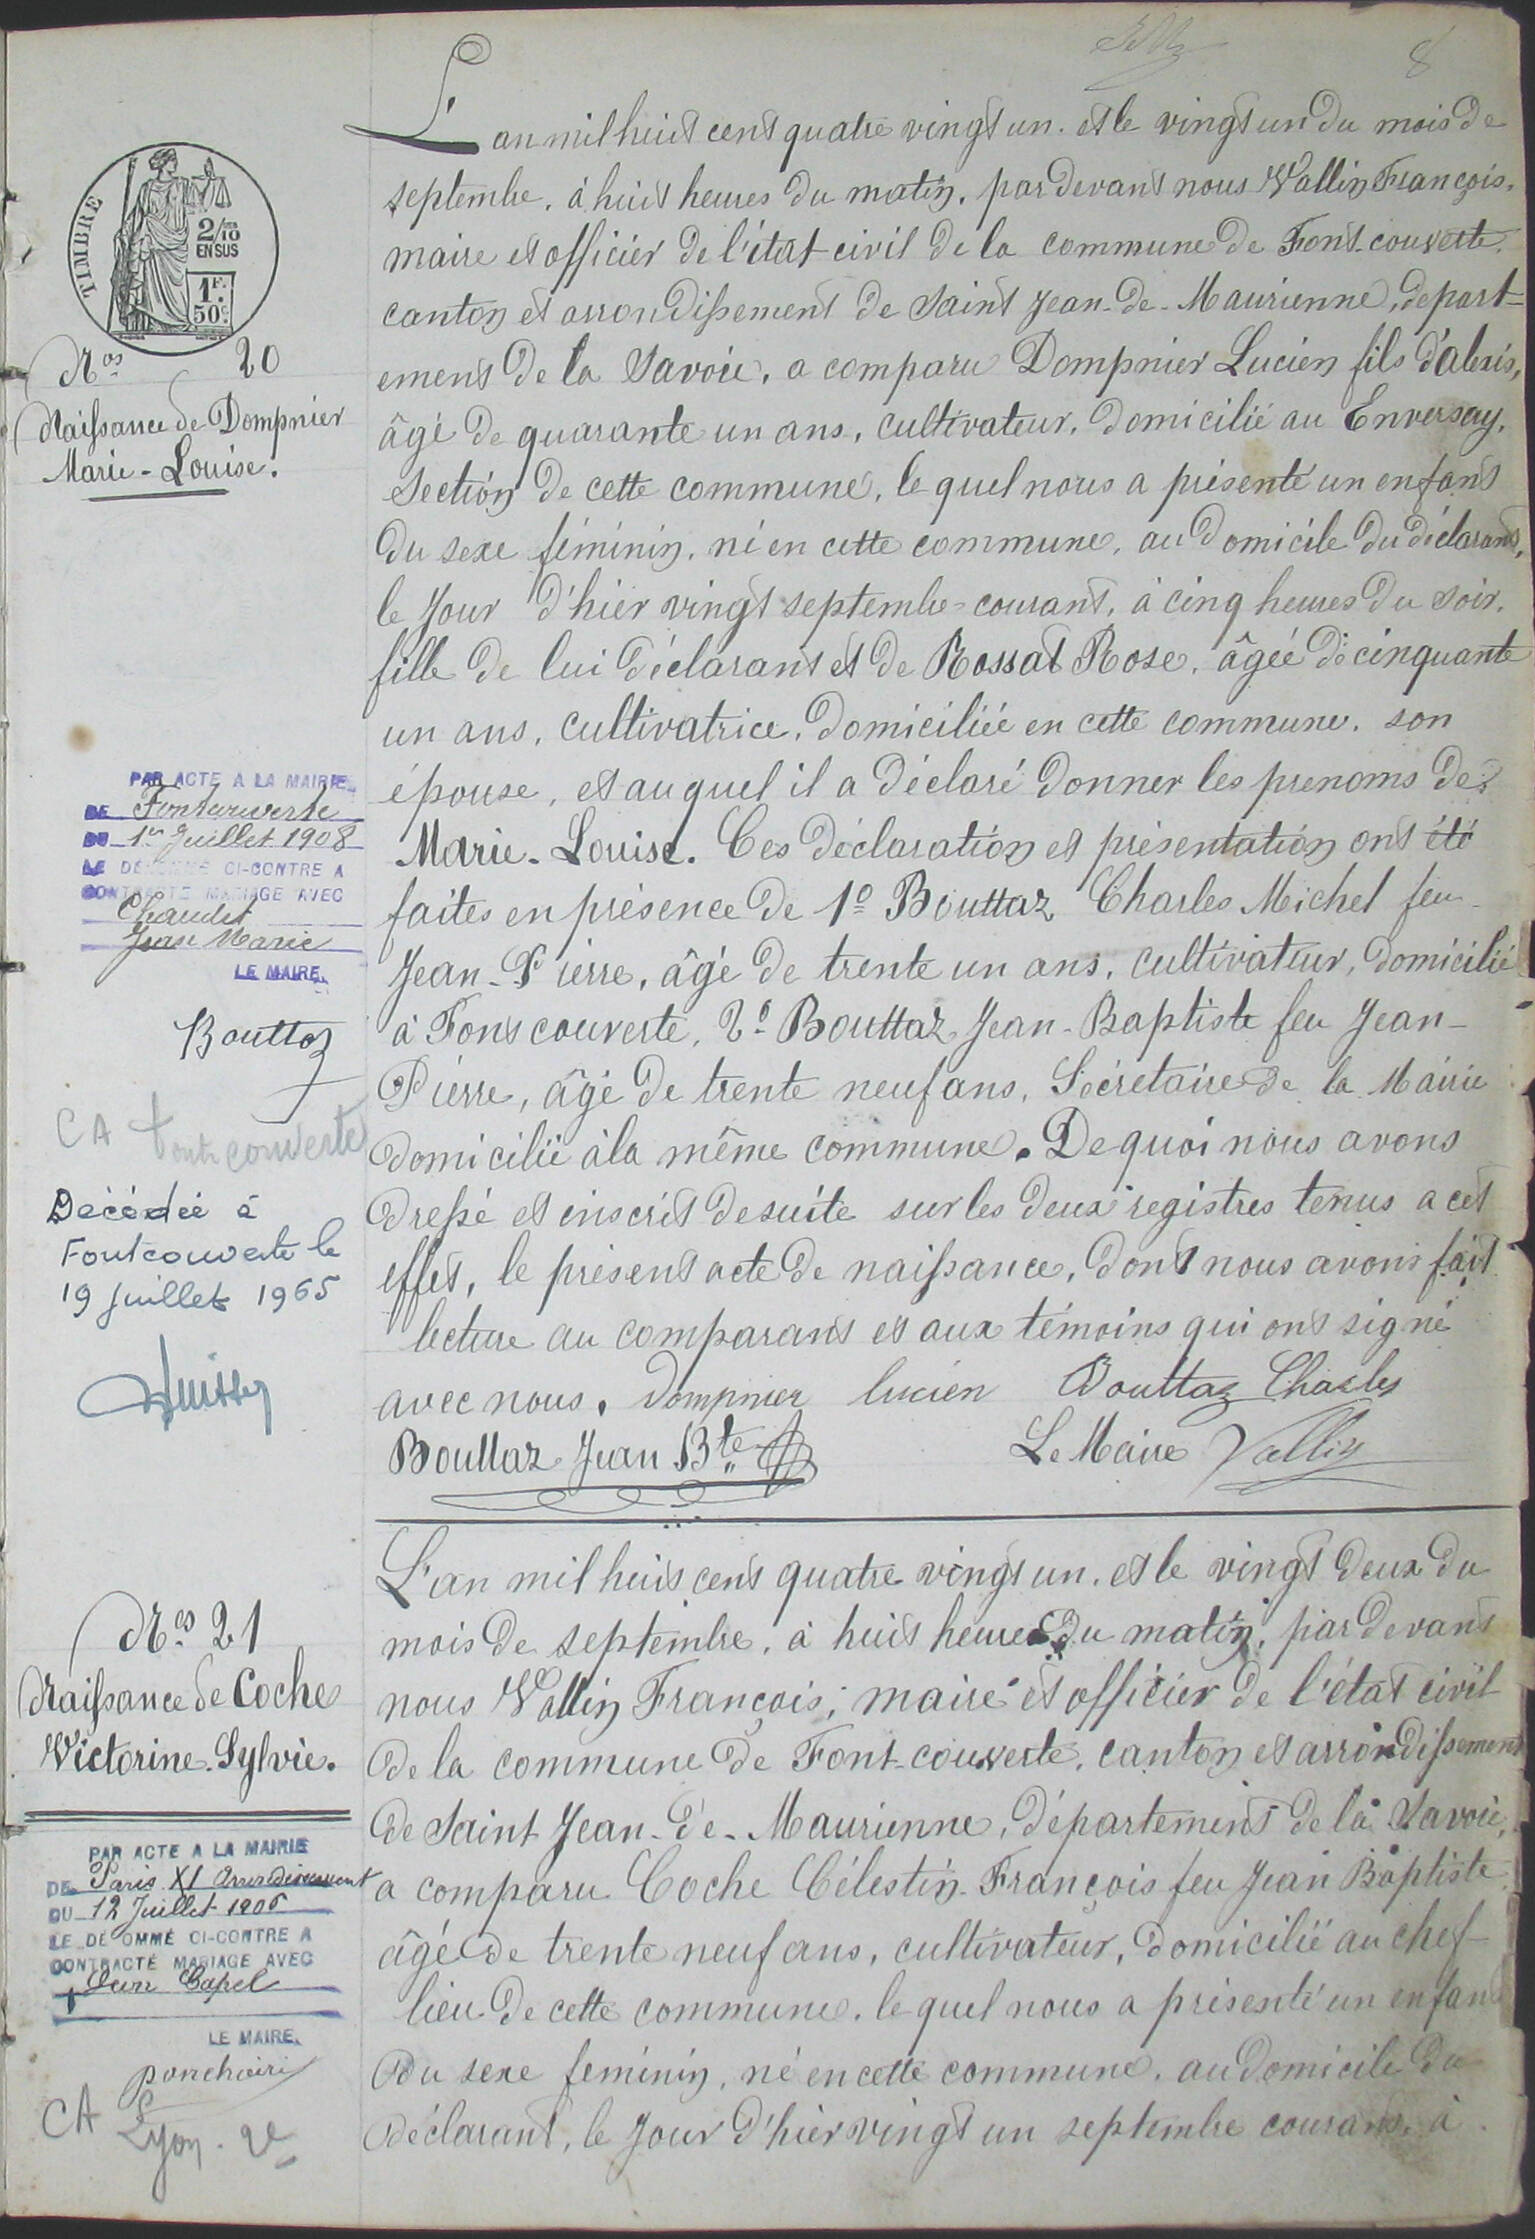 8
L'an mil huit cent quatre vingt un. et le vingt un du mois de
septembre, à huit heures du matin, par devant nous Vallin François,
maire et officier de l'état civil de la commune de Font-couverte,
canton et arrondissement de Saint Jean-de-Maurienne, départ=
ement de la Savoie, a comparu Dompnier Lucien fils d'alexis,
âgé de quarante un ans, cultivateur, domicilié au Enversay,
Section de cette commune, le quel nous a présenté un enfant
du sexe féminin, né en cette commune, au domicile du déclarant,
le jour d'hier vingt septembre courant, à cinq heures du soir,
fille de lui déclarant et de Rossat Rose, âgée de cinquante
un ans, cultivatrice, domiciliée en cette commune, son
épouse, et auquel il a déclaré donner les prenoms de
Marie-Louise. Ces déclaration et présentation ont été
faites en présence de 1º Bouttaz Charles Michel feu
Jean-Pierre, âgé de trente un ans, cultivateur, domicilié
à Fontcouverte, 2º Bouttaz Jean-Baptiste feu Jean-
Pierre, âgé de trente neuf ans, Sécretaire de la Mairie
domicilié à la même commune. De quoi nous avons
dressé et inscrit desuite sur les deux registres tenus a cet
effet, le présent acte de naissance, dont nous avons fait
lecture au comparant et aux témoins qui ont signé
avec nous. Dompnier lucien Bouttaz Charles
Bouttaz Jean Bte Le Maire Vallin
L'an mil huit cent quatre vingt un, et le vingt deux du
mois de septembre, à huit heures du matin, par devant
nous Vallin François, maire et officier de l'état civil
de la commune de Font-couverte, canton et arrondissement
de Saint Jean-de-Maurienne, département de la Savoie,
a comparu Coche Célestin-François feu Jean Baptiste
âgé de trente neuf ans, cultivateur, domicilié au chef
lieu de cette commune, le quel nous a présenté un enfant
du sexe feminin, né en cette commune, au domicile du
déclarant, le jour d'hier vingt un septembre courant, à
TIMBRE
2/10
EN SUS
1F.
50c.
Nos 20
Naissance de Dompnier
Marie-Louise.
PAR ACTE A LA MAIRIE
DE Fontcouverte
DU 1er Juillet 1908
LE DÉNOMMÉ CI-CONTRE A
CONTRACTÉ MARIAGE AVEC
Marie
LE MAIRE,
Bouttaz
CA Fontcouverte
Décédée à
Fontcouverte le
19 juillet 1965
Nos 21
Naissance de Coche
Victorine-Sylvie.
PAR ACTE A LA MAIRIE
DE Paris XI Arrondissement
DU 12 Juillet 1906
LE DÉNOMMÉ CI-CONTRE A
CONTRACTÉ MARIAGE AVEC
Capel
LE MAIRE,
CA Lyon. 2e